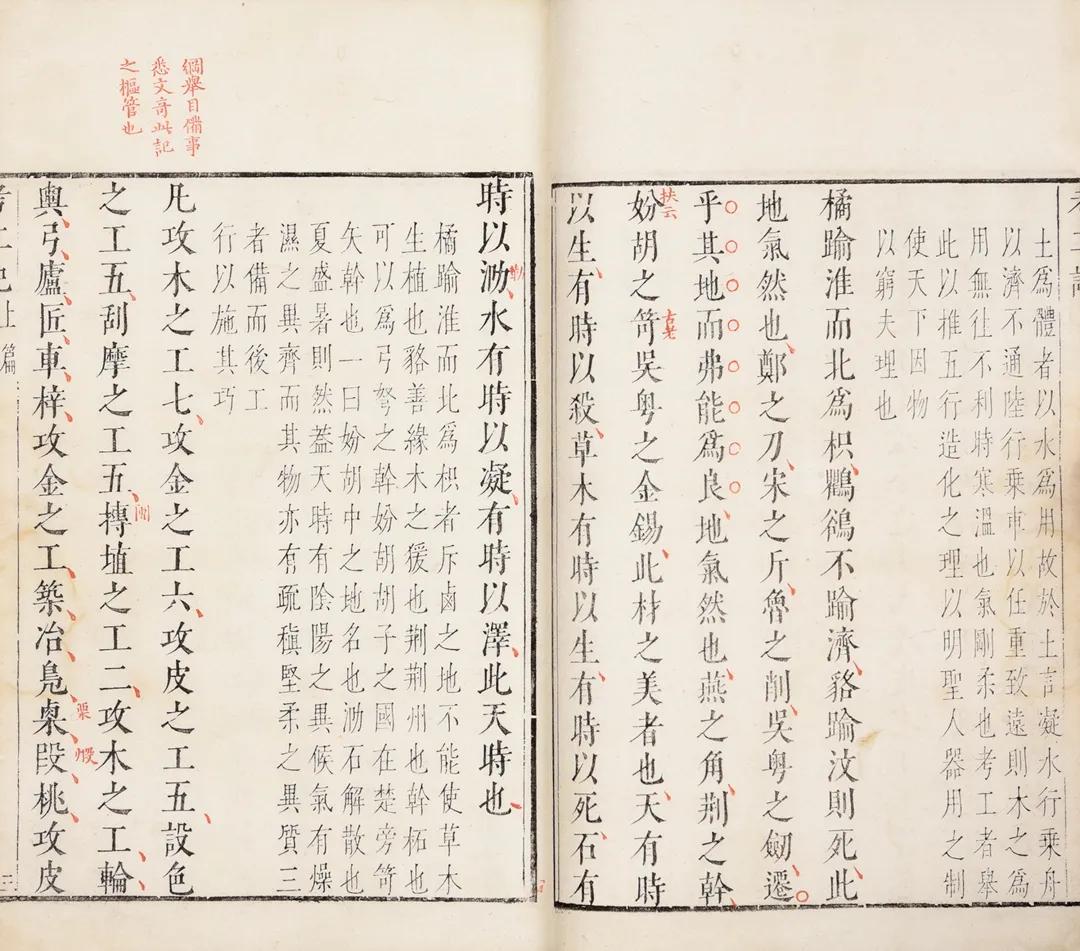 土為體者以水為用故於土言凝水行乘舟
以濟不通陸行乘車以任重致遠則木之為
用無往不利時寒溫也氣剛柔也考工者舉
此以推五行造化之理以明聖人器用之制
使天下因物
以窮夫理也
橘踰淮而北為枳鸜鵒不踰濟貉踰汶則死此
地氣然也鄭之刀宋之斤魯之削吳粤之劒遷
乎其地而弗能為良地氣然也燕之角荆之幹
扶云
妢胡之笴吳粤之金錫此材之美者也天有時
古老
以生有時以殺草木有時以生有時以死石有
綱舉目備事
悉文奇此記
之樞管也
時以泐水有時以凝有時以澤此天時也
勒
橘踰淮而北為枳者斥鹵之地不能使草木
生植也貉善緣木之猨也荆荆州也幹柘也
可以為弓弩之幹妢胡胡子之國在楚旁笴
矢幹也一曰妢胡中之地名也泐石解散也
夏盛暑則然葢天時有陰陽之異候氣有燥
濕之異齊而其物亦有疏稹堅柔之異質三
者備而後工
行以施其巧
凡攻木之工七攻金之工六攻皮之工五設色
之工五刮摩之工五摶埴之工二攻木之工輪
輿弓廬匠車梓攻金之工築冶鳧㮚段桃攻皮
栗
考工記上篇
三